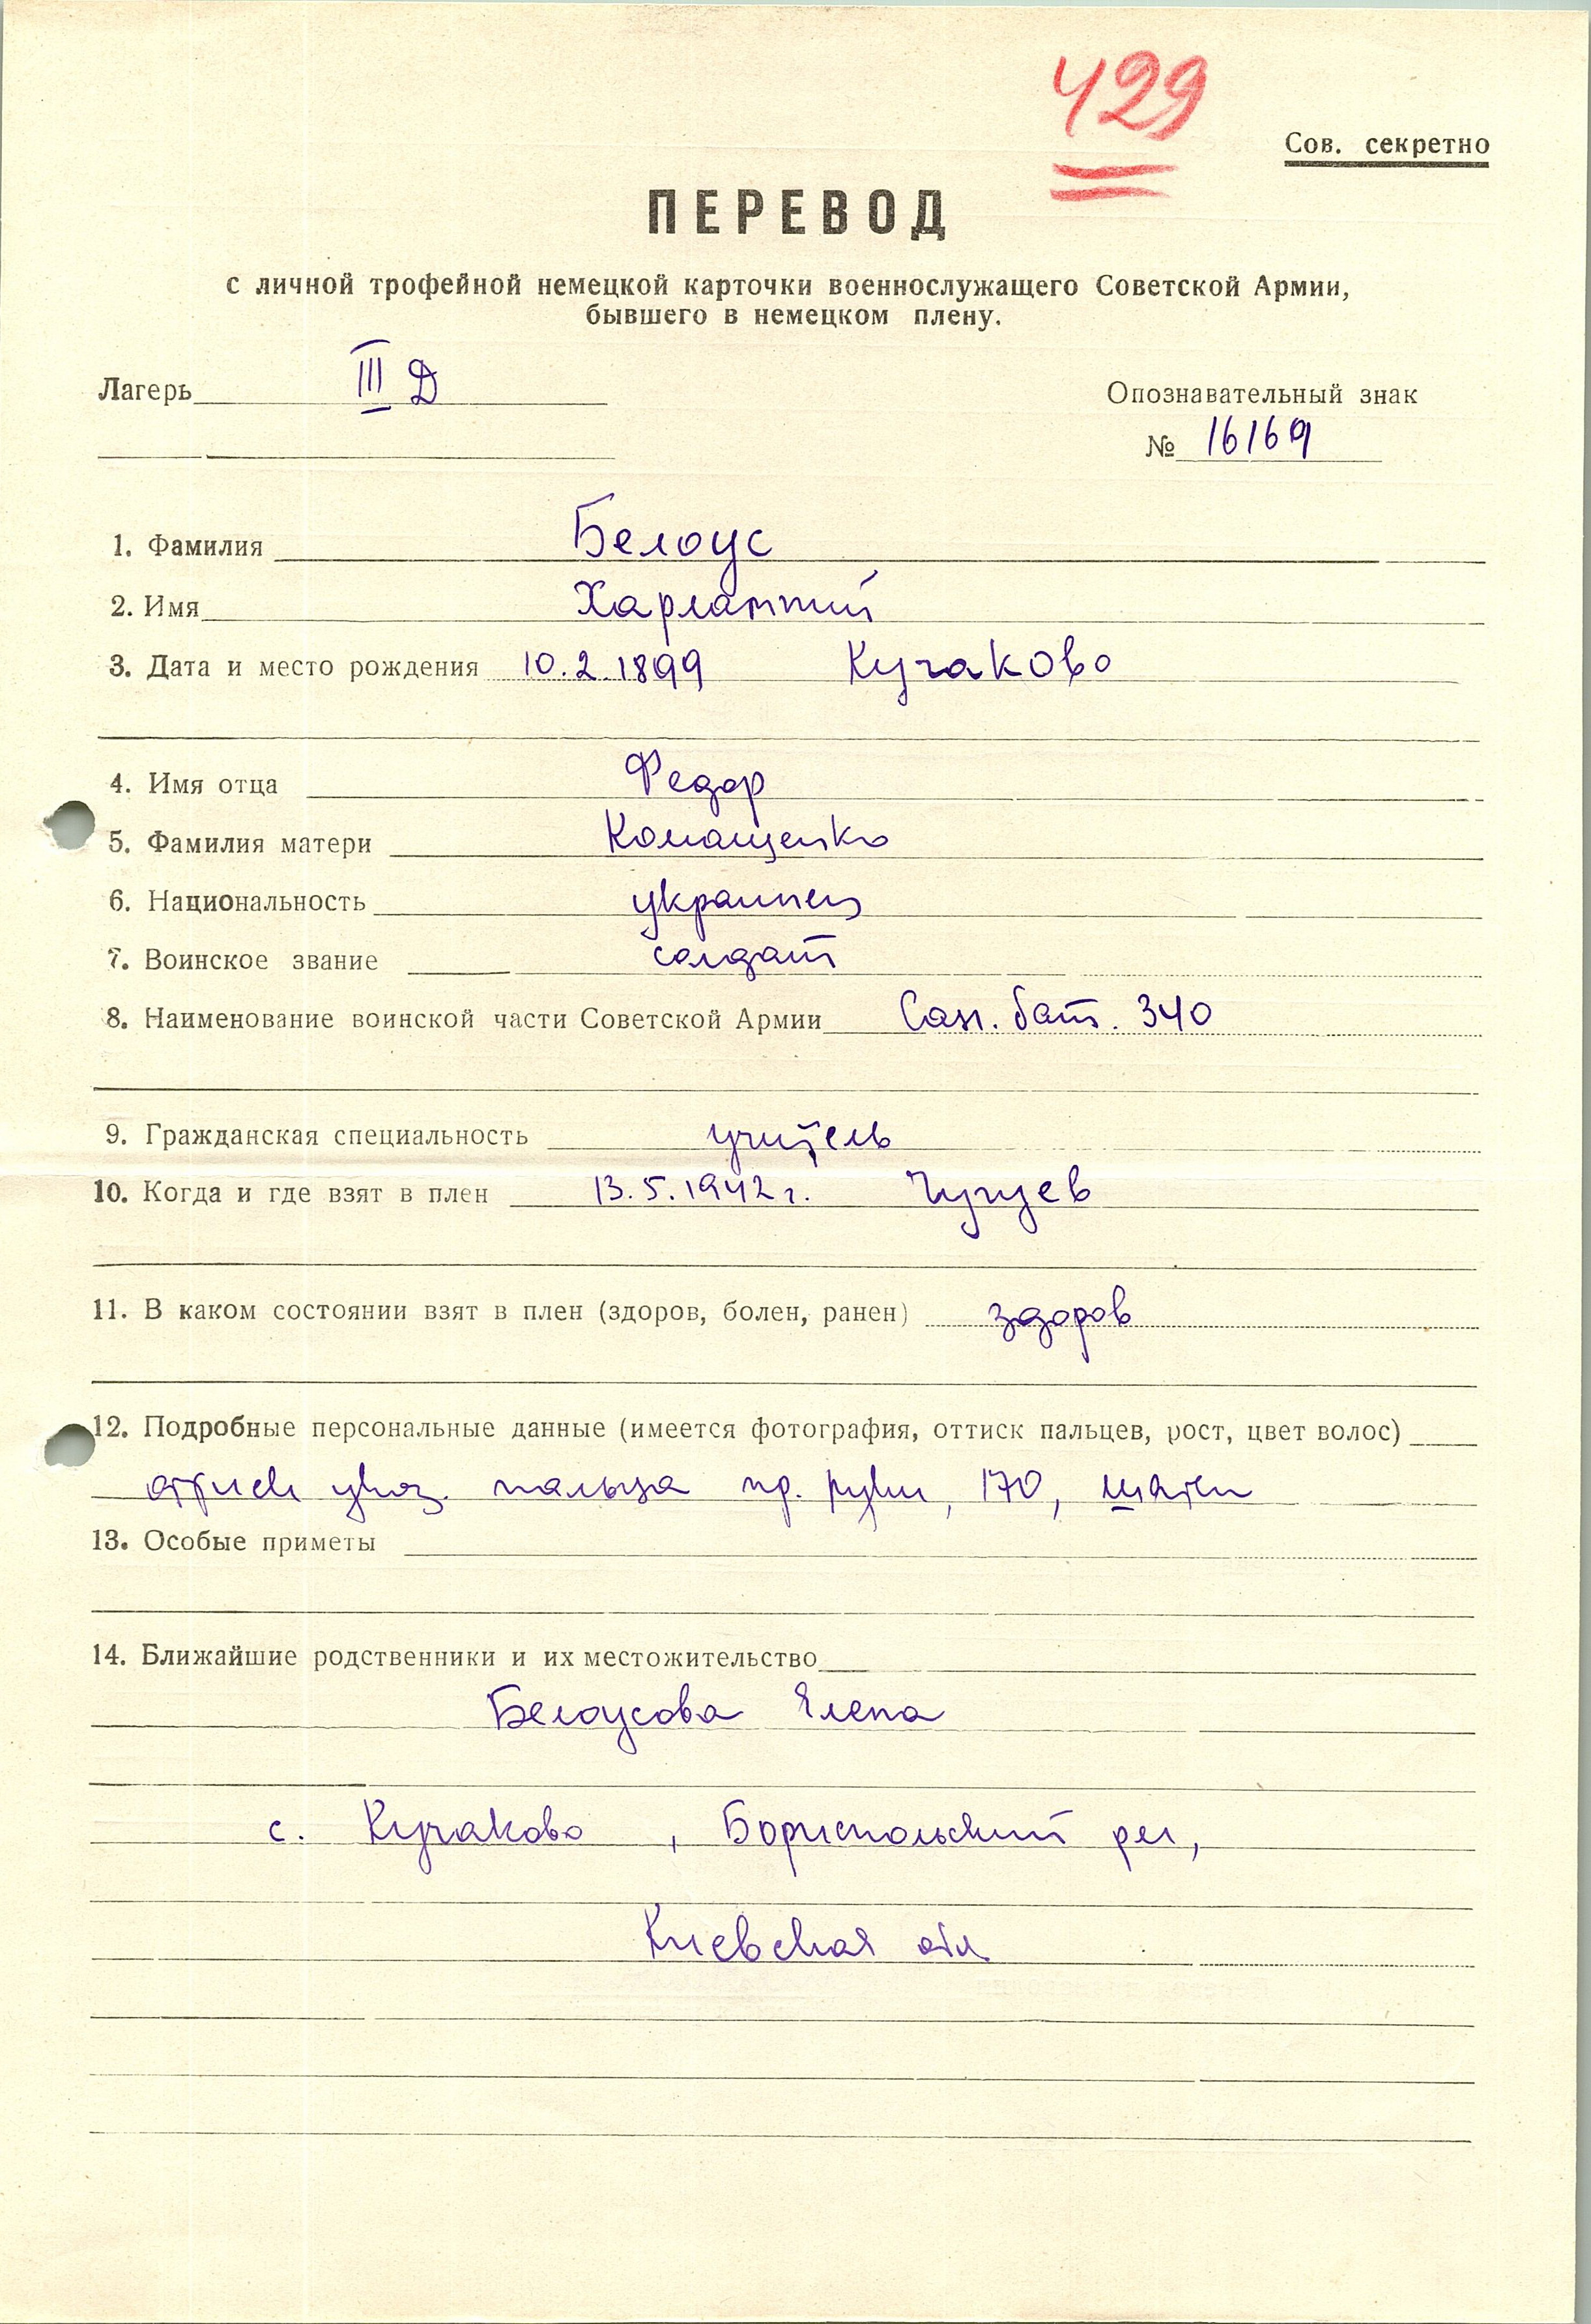 429
Сов. секретно
ПЕРЕВОД
с личной трофейной немецкой карточки военнослужащего Советской Армии,
бывшего в немецком плену.
Лагерь III Д
Опознавательный знак
№ 16169
1. Фамилия Белоус
2. Имя Харлампий
3. Дата и место рождения 10.2.1899 Кучаково
4. Имя отца Федор
5. Фамилия матери Комащенко
6. Национальность украинец
7. Воинское звание солдат
8. Наименование воинской части Советской Армии Сан. бат. 340
9. Гражданская специальность учитель
10. Когда и где взят в плен 13.5.1942 г. Чугуев
11. В каком состоянии взят в плен (здоров, болен, ранен) здоров
12. Подробные персональные данные (имеется фотография, оттиск пальцев, рост, цвет волос)
оттиск указ. пальца пр. руки, 170, шатен
13. Особые приметы
14. Ближайшие родственники и их местожительство
Белоусова Елена
с. Кучаково, Бориспольский р-н,
Киевская обл